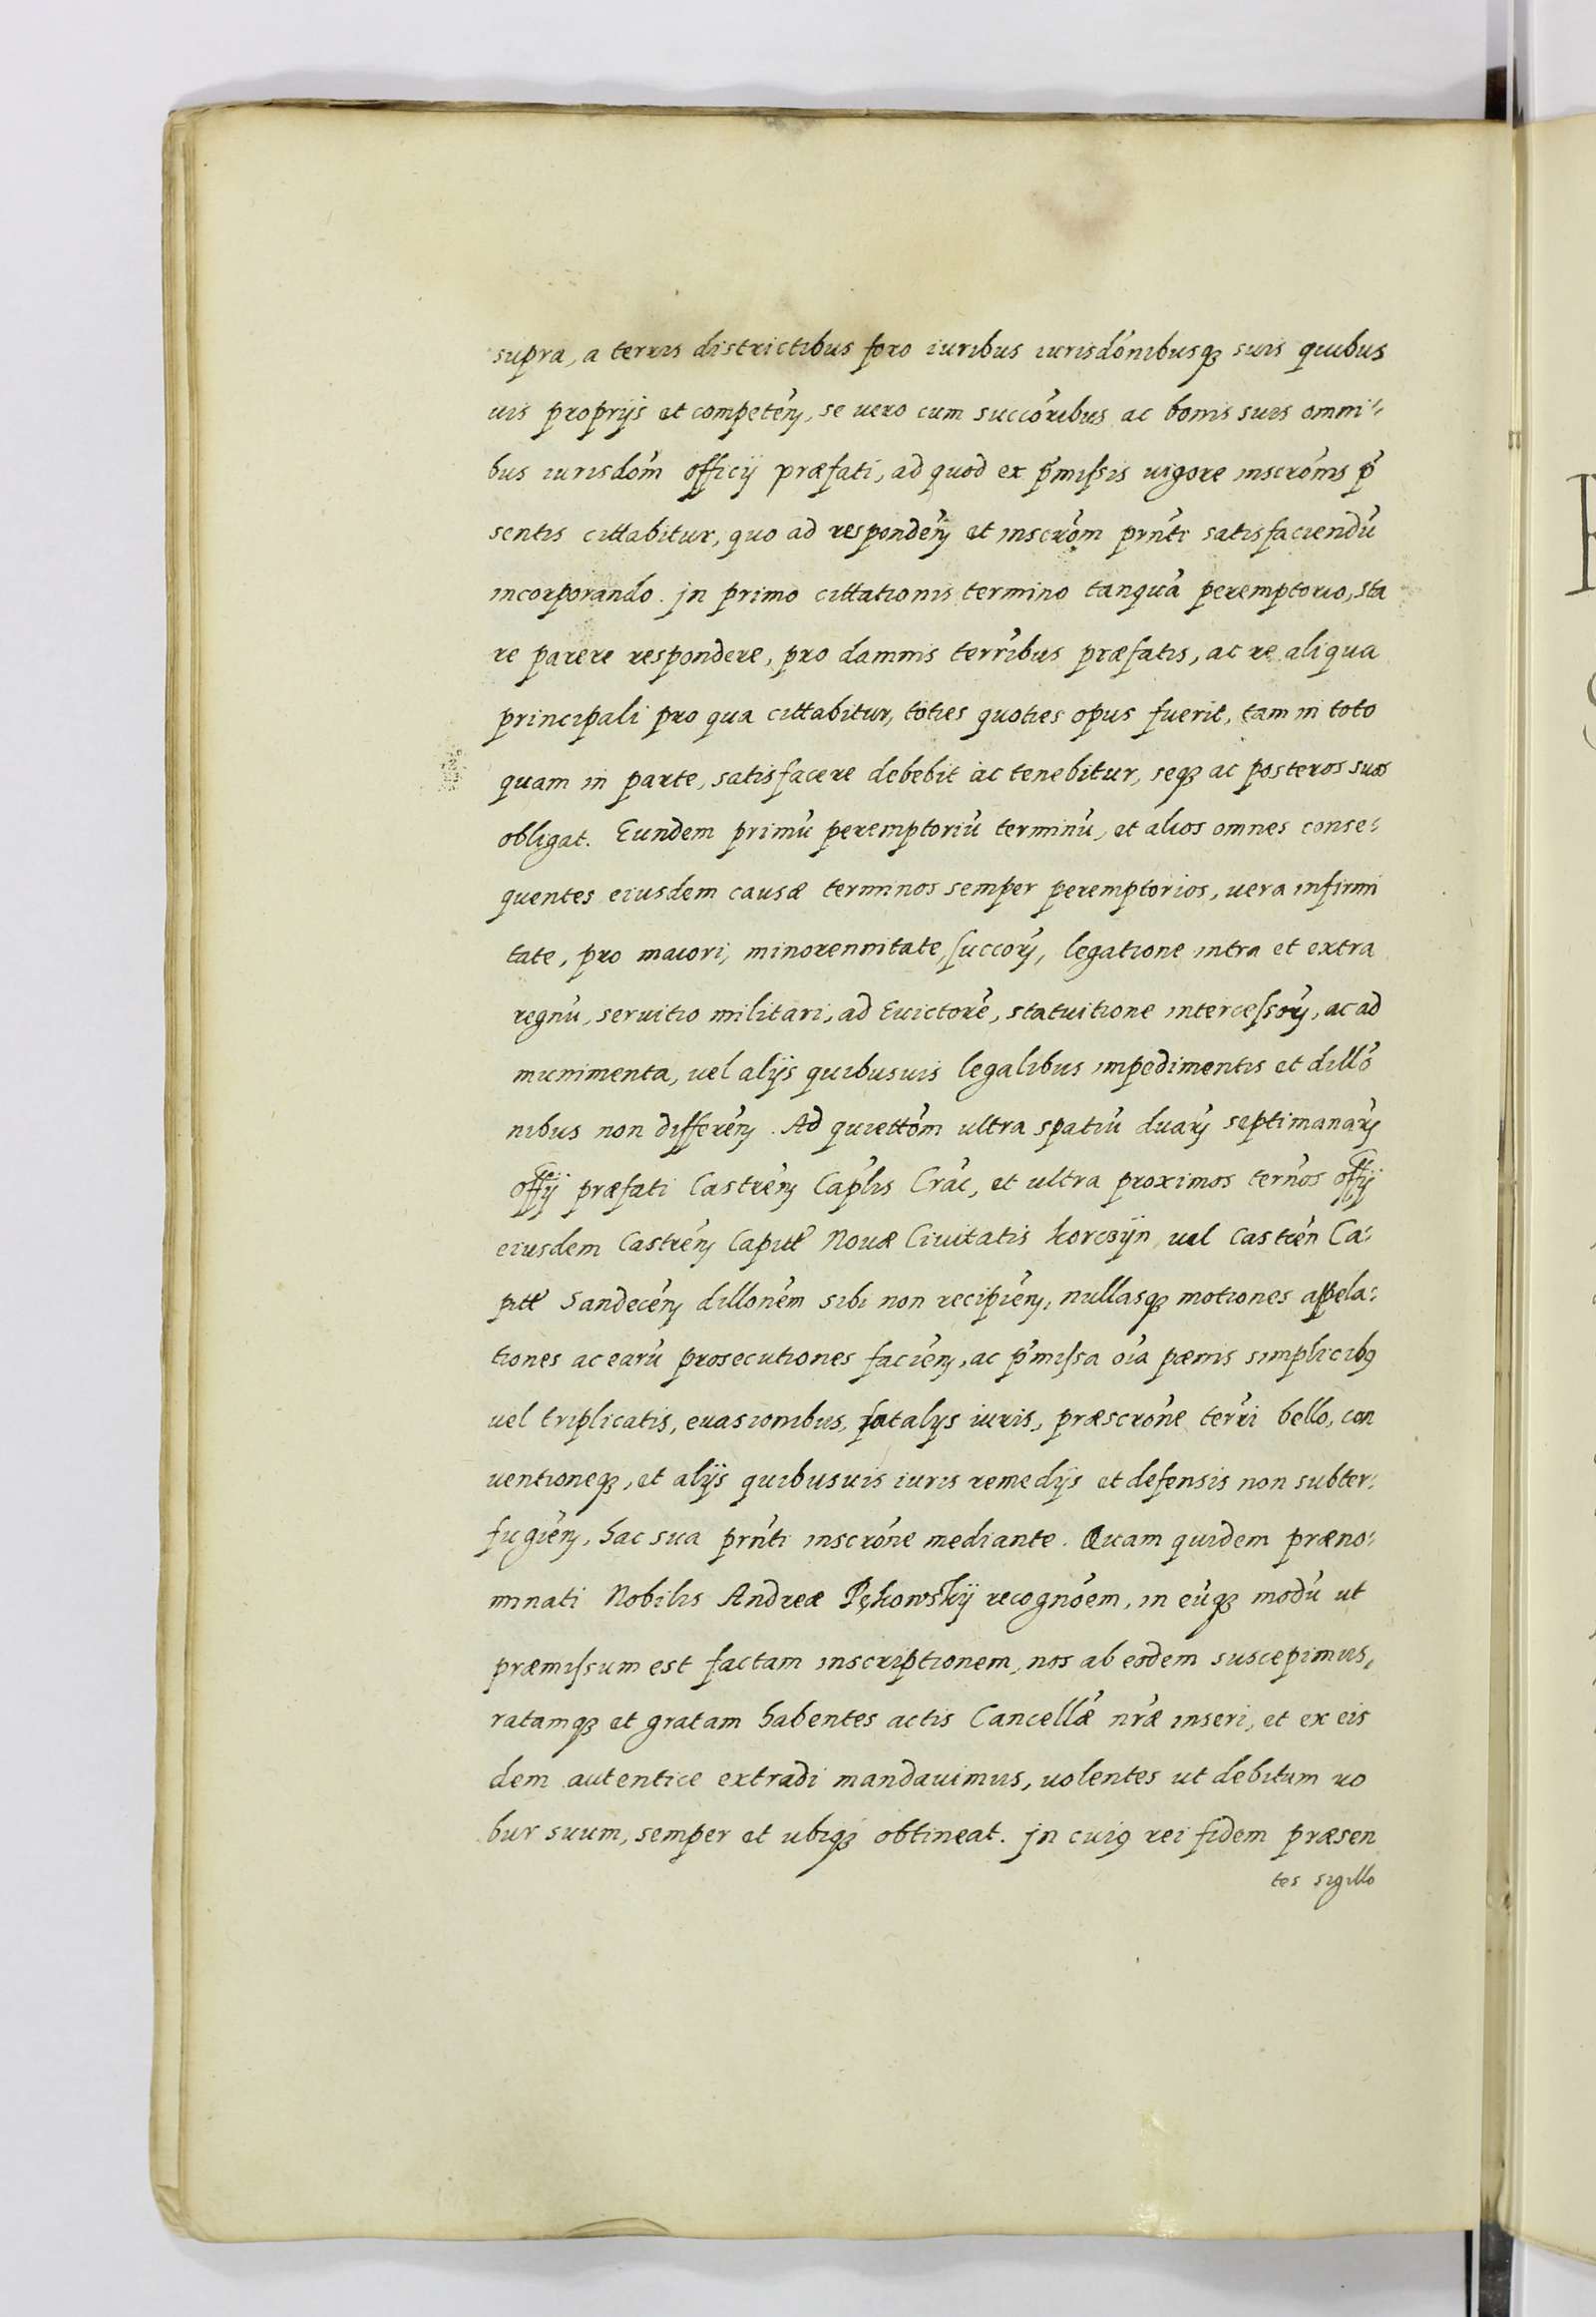 supra, a terris districtibus foro iuribus iurisdónibusqꝫ suis quibus
uis proprijs et competéñ, se uero cum succóribus ac bonis suis omni:
bus iurisdóm officij præfati, ad quod ex p̃miſsis uigore inscrónis p̃
sentis cittabitur, quo ad respondéñ et inscróm prńti satisfaciendú
incorporando. jn primo cittationis termino tanquá peremptorio, sta
re parere respondere, pro damnis terŕibus præfatis, ac re aliqua
principali pro qua cittabitur, toties quoties opus fuerit, tam in toto
quam in parte, satisfacere debebit ac tenebitur, seqꝫ ac posteros suos
obligat. Eundem primú peremptoriú terminú, et alios omnes conse:
quentes eiusdem causæ terminos semper peremptorios, uera infirmi
tate, pro maiori, minorennitate, ſuccorꝫ, legatione intra et extra
regnú, seruitio militari, ad Euictoré, statuitione interceſsorꝫ, ac ad
munimenta, uel alijs quibusuis legalibus impedimentis et dilló
nibus non differéñ. Ad quiettóm ultra spatiú duarꝫ septimanarꝫ
offij præfati Castréñ Cap̃lis Crać, et ultra proximos terńos offij
eiusdem Castréñ Capitł Nouæ Ciuitatis korczijn uel Castréń Ca:
pitł Sandecéñ dilloném sibi non recipiéñ, nullasqꝫ motiones appela:
tiones ac earú prosecutiones faciéñ, ac p̃miſsa oía pænis simplicibꝰ
uel triplicatis, euasionibus, fatalijs iuris, præscróne terŕi bello, con
uentioneqꝫ, et alijs quibusuis iuris remedijs et defensis non subter:
fugiéñ, hac sua prńti inscróne mediante. Quam quidem præno:
minati Nobilis Andreæ Pękowskij recognóem, in eúqꝫ modú ut
præmiſsum est factam inscriptionem, nos ab eodem suscepimus,
ratamqꝫ et gratam habentes actis Cancellǽ nrǽ inseri, et ex eis
dem autentice extradi mandauimus, uolentes ut debitum ro
bur suum, semper et ubiqꝫ obtineat. jn cuiꝰ rei fidem præsen
tes sigillo